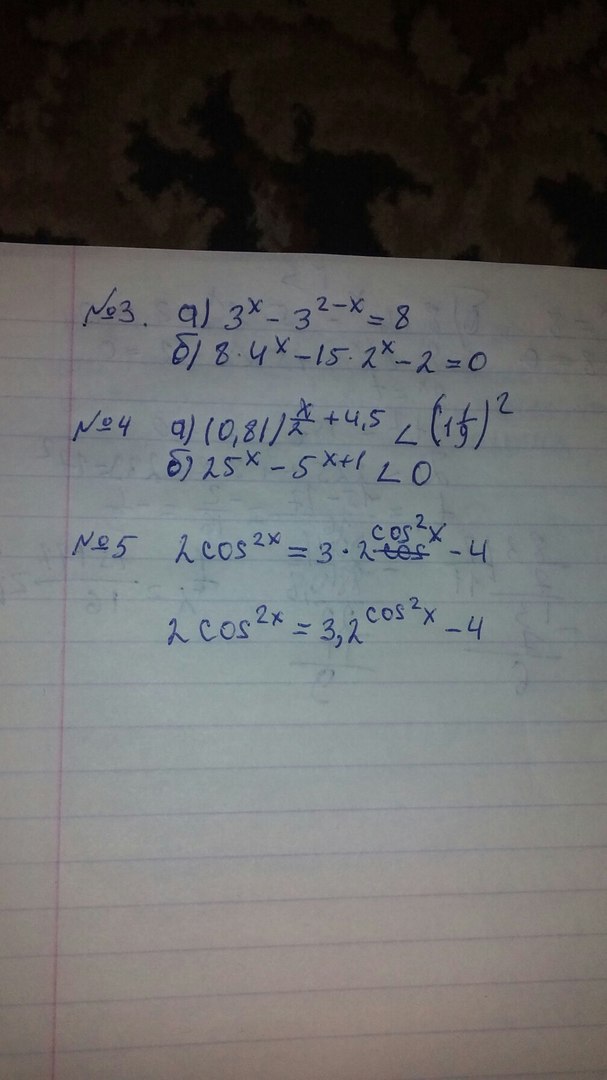 №3. а) 3^x - 3^{2-x} = 8
б) 8 · 4^x - 15 · 2^x - 2 = 0
№4 а) (0,81)^{x/2 + 4,5} < (1 1/9)^2
б) 25^x - 5^{x+1} < 0
№5 2cos^{2x} = 3 · 2^{cos^2 x} - 4
2cos^{2x} = 3,2^{cos^2 x} - 4